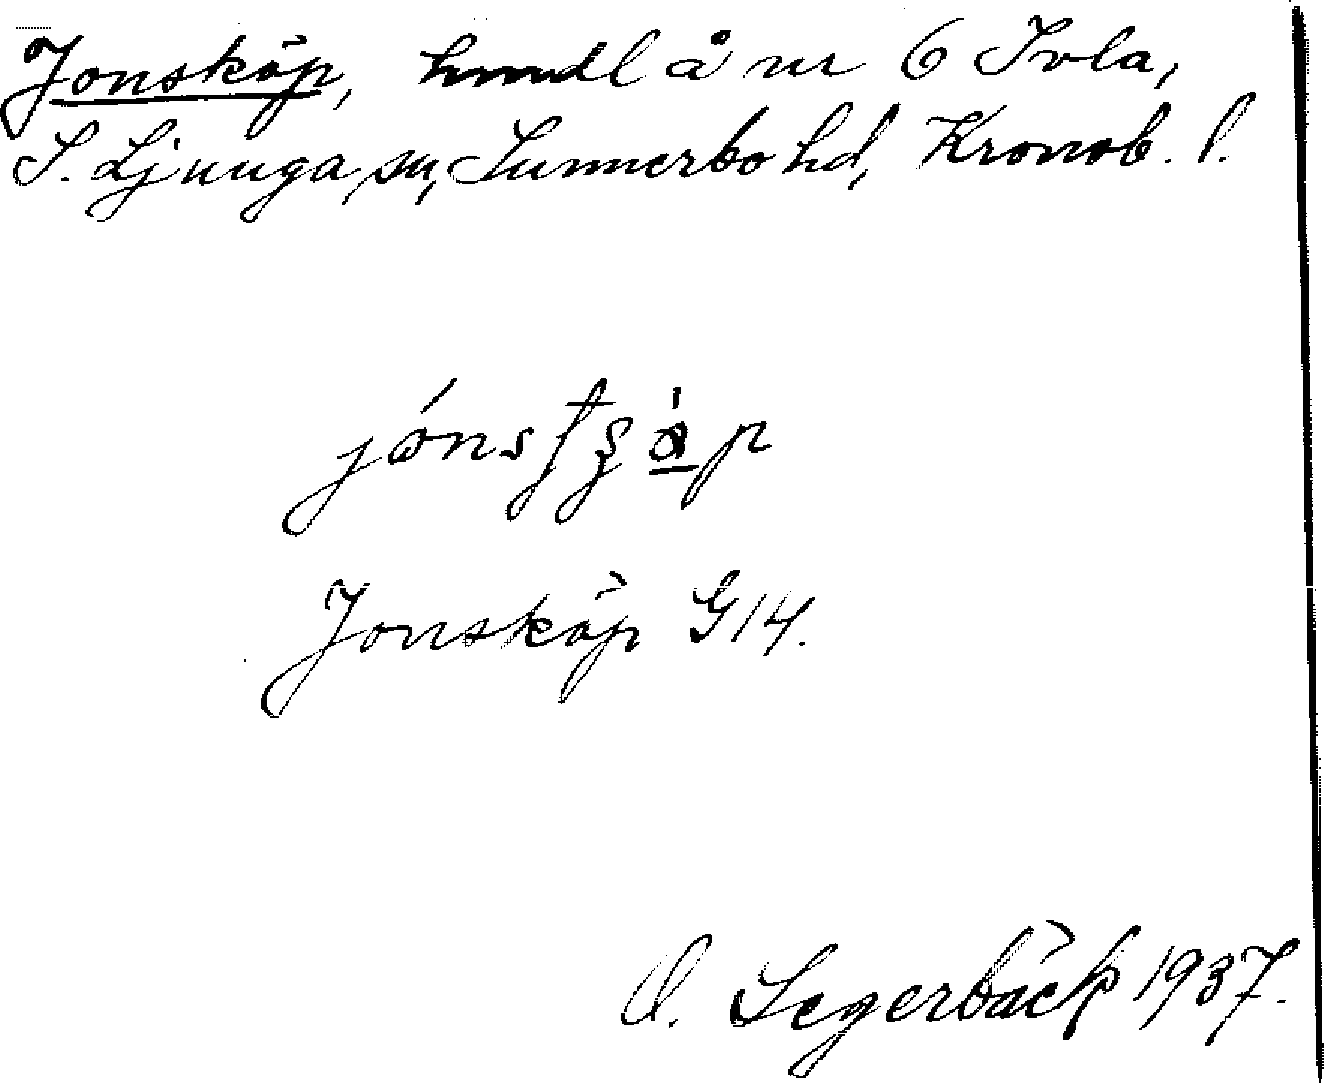 Jonsköp, hmdl å nr 6 Ivla,
S. Ljunga sn, Sunnerbo hd, Kronob. l.
Jonsköp G14.
O. Segerbäck 1937.